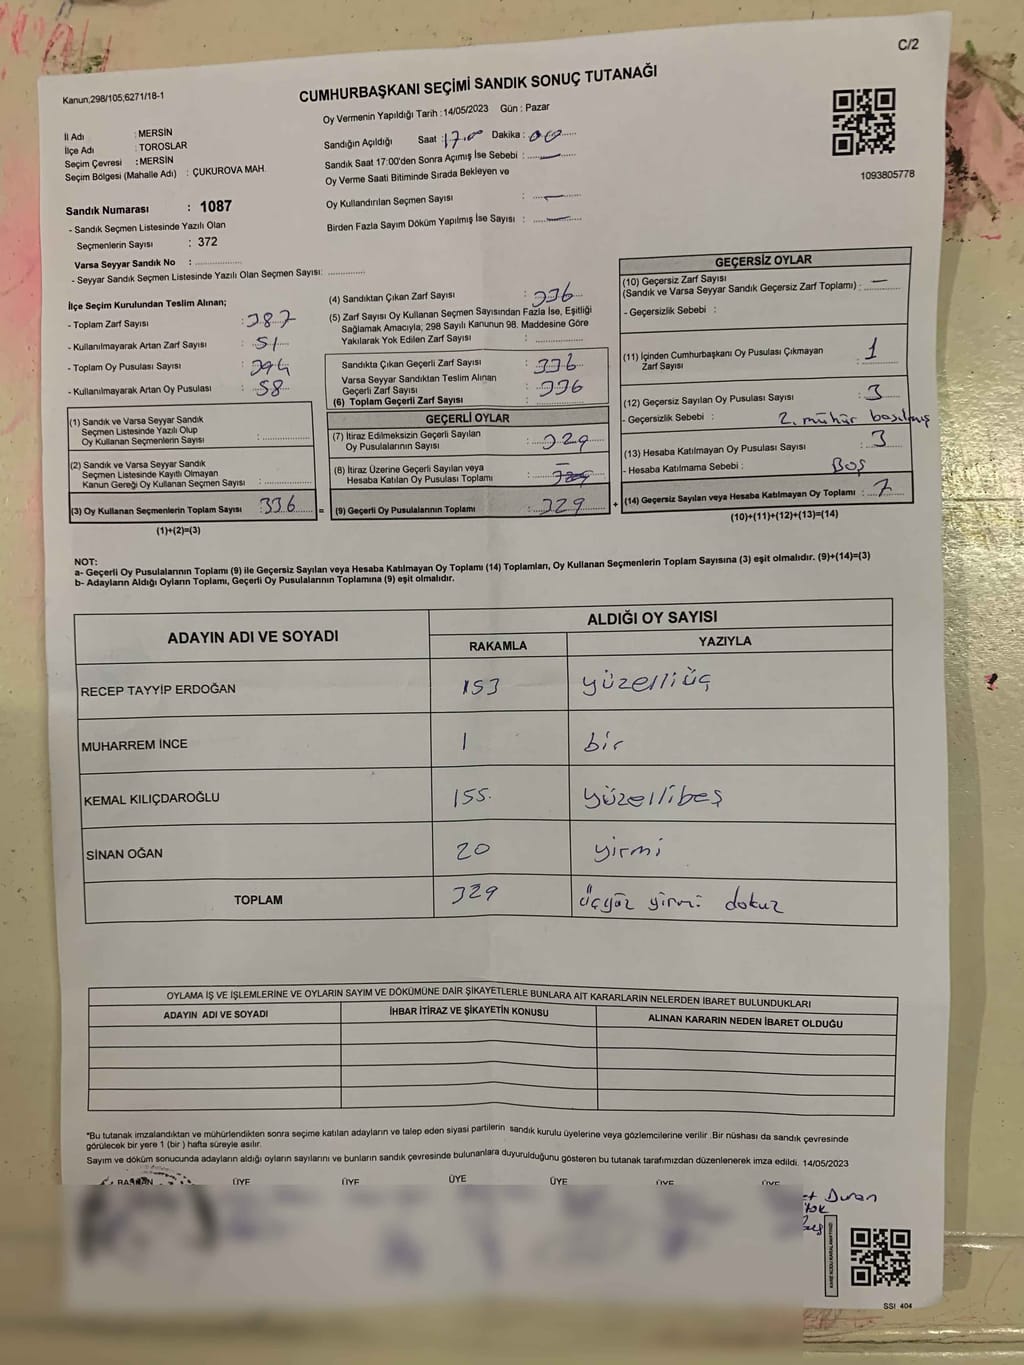 C/2
Kanun,298/105;6271/18-1
CUMHURBAŞKANI SEÇİMİ SANDIK SONUÇ TUTANAĞI
Oy Vermenin Yapıldığı Tarih : 14/05/2023 Gün : Pazar
İl Adı : MERSİN
İlçe Adı : TOROSLAR
Seçim Çevresi : MERSİN
Seçim Bölgesi (Mahalle Adı) : ÇUKUROVA MAH.
Sandık Numarası : 1087
- Sandık Seçmen Listesinde Yazılı Olan
Seçmenlerin Sayısı : 372
Varsa Seyyar Sandık No : ..............
- Seyyar Sandık Seçmen Listesinde Yazılı Olan Seçmen Sayısı: ............
Sandığın Açıldığı Saat : 17.00 Dakika : 00
Sandık Saat 17:00'den Sonra Açımış İse Sebebi : —
Oy Verme Saati Bitiminde Sırada Bekleyen ve
Oy Kullandırılan Seçmen Sayısı : —
Birden Fazla Sayım Döküm Yapılmış İse Sayısı : —
1093805778
İlçe Seçim Kurulundan Teslim Alınan;
- Toplam Zarf Sayısı : 387
- Kullanılmayarak Artan Zarf Sayısı : 51
- Toplam Oy Pusulası Sayısı : 394
- Kullanılmayarak Artan Oy Pusulası : 58
(1) Sandık ve Varsa Seyyar Sandık
Seçmen Listesinde Yazılı Olup
Oy Kullanan Seçmenlerin Sayısı : ..............
(2) Sandık ve Varsa Seyyar Sandık
Seçmen Listesinde Kayıtlı Olmayan
Kanun Gereği Oy Kullanan Seçmen Sayısı : ..............
(3) Oy Kullanan Seçmenlerin Toplam Sayısı : 336 =
(1)+(2)=(3)
(4) Sandıktan Çıkan Zarf Sayısı : 336
(5) Zarf Sayısı Oy Kullanan Seçmen Sayısından Fazla İse, Eşitliği
Sağlamak Amacıyla, 298 Sayılı Kanunun 98. Maddesine Göre
Yakılarak Yok Edilen Zarf Sayısı : ..............
Sandıkta Çıkan Geçerli Zarf Sayısı : 336
Varsa Seyyar Sandıktan Teslim Alınan
Geçerli Zarf Sayısı : 336
(6) Toplam Geçerli Zarf Sayısı : ..............
GEÇERLİ OYLAR
(7) İtiraz Edilmeksizin Geçerli Sayılan
Oy Pusulalarının Sayısı : 329
(8) İtiraz Üzerine Geçerli Sayılan veya
Hesaba Katılan Oy Pusulası Toplamı : — 329
(9) Geçerli Oy Pusulalarının Toplamı : 329 +
GEÇERSİZ OYLAR
(10) Geçersiz Zarf Sayısı
(Sandık ve Varsa Seyyar Sandık Geçersiz Zarf Toplamı) : —
- Geçersizlik Sebebi :
(11) İçinden Cumhurbaşkanı Oy Pusulası Çıkmayan
Zarf Sayısı : 1
(12) Geçersiz Sayılan Oy Pusulası Sayısı : 3
- Geçersizlik Sebebi : 2. mühür basılmış
(13) Hesaba Katılmayan Oy Pusulası Sayısı : 3
- Hesaba Katılmama Sebebi : Boş
(14) Geçersiz Sayılan veya Hesaba Katılmayan Oy Toplamı : 7
(10)+(11)+(12)+(13)=(14)
NOT:
a- Geçerli Oy Pusulalarının Toplamı (9) ile Geçersiz Sayılan veya Hesaba Katılmayan Oy Toplamı (14) Toplamları, Oy Kullanan Seçmenlerin Toplam Sayısına (3) eşit olmalıdır. (9)+(14)=(3)
b- Adayların Aldığı Oyların Toplamı, Geçerli Oy Pusulalarının Toplamına (9) eşit olmalıdır.
ADAYIN ADI VE SOYADI
ALDIĞI OY SAYISI
RAKAMLA YAZIYLA
RECEP TAYYİP ERDOĞAN 153 yüzelliüç
MUHARREM İNCE 1 bir
KEMAL KILIÇDAROĞLU 155. yüzellibeş
SİNAN OĞAN 20 yirmi
TOPLAM 329 üçyüz yirmi dokuz
OYLAMA İŞ VE İŞLEMLERİNE VE OYLARIN SAYIM VE DÖKÜMÜNE DAİR ŞİKAYETLERLE BUNLARA AİT KARARLARIN NELERDEN İBARET BULUNDUKLARI
ADAYIN ADI VE SOYADI İHBAR İTİRAZ VE ŞİKAYETİN KONUSU ALINAN KARARIN NEDEN İBARET OLDUĞU
*Bu tutanak imzalandıktan ve mühürlendikten sonra seçime katılan adayların ve talep eden siyasi partilerin sandık kurulu üyelerine veya gözlemcilerine verilir .Bir nüshası da sandık çevresinde
görülecek bir yere 1 (bir ) hafta süreyle asılır.
Sayım ve döküm sonucunda adayların aldığı oyların sayılarını ve bunların sandık çevresinde bulunanlara duyurulduğunu gösteren bu tutanak tarafımızdan düzenlenerek imza edildi. 14/05/2023
BAŞKAN ÜYE ÜYE ÜYE ÜYE ÜYE ÜYE
Duran
SSI 404